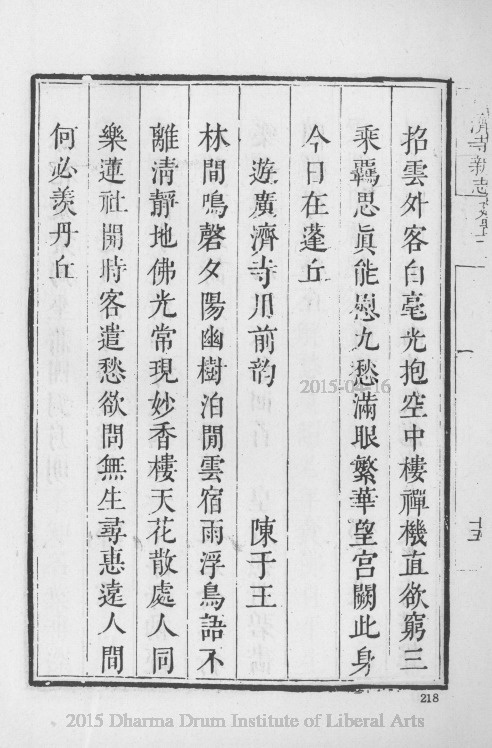 招雲外客白毫光抱空中樓禪機直欲窮三
乘羈思眞能慰九愁滿眼繁華望宫闕此身
今日在蓬丘
遊廣濟寺用前韵 陳于王
林間鳴磬夕陽幽樹泊閒雲宿雨浮鳥語不
離清靜地佛光常現妙香樓天花散處人同
樂蓮社開時客遣愁欲問無生尋惠遠人間
何必羨丹丘
濟寺新志卷
十五
2015-04-16
218
2015 Dharma Drum Institute of Liberal Arts